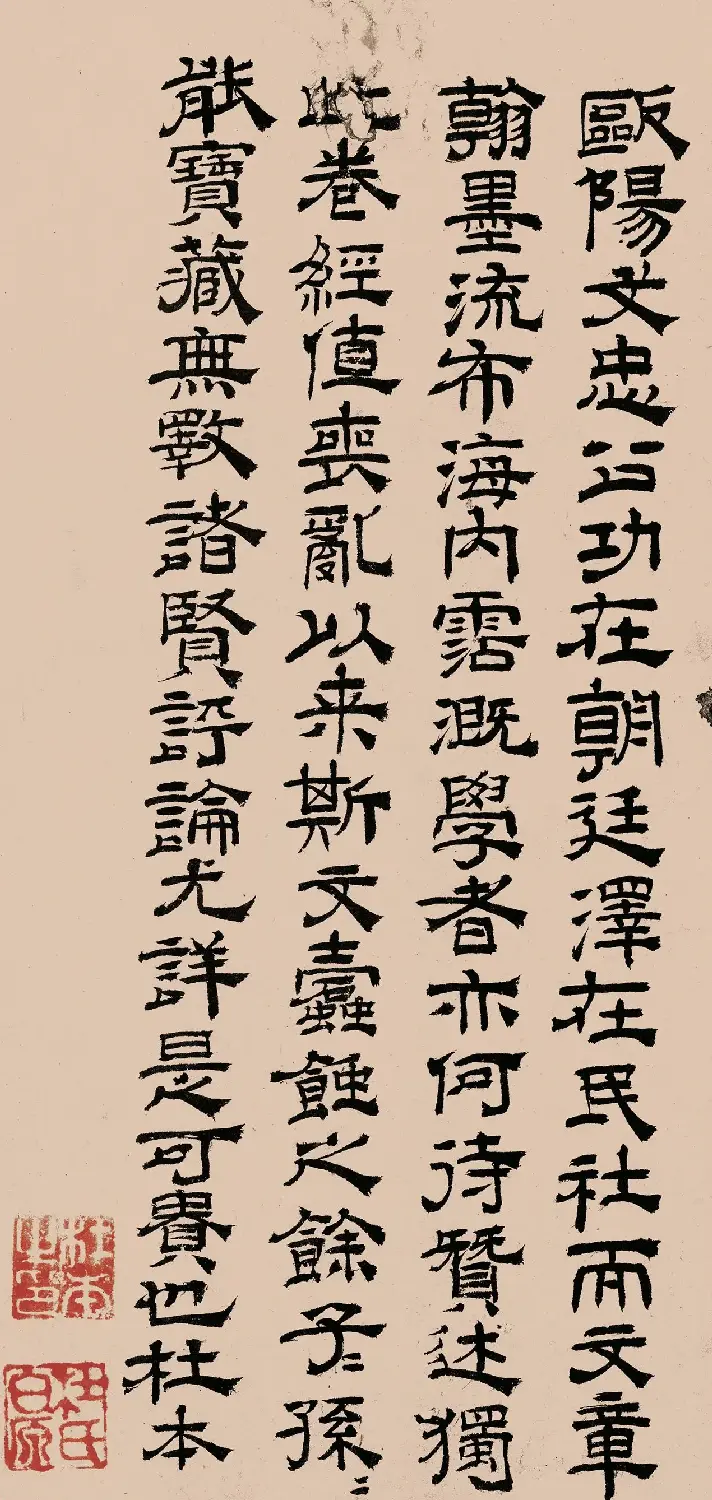 歐陽文忠公功在朝廷澤在民社而文章
翰墨流布海內霑溉學者亦何待贊述獨
此卷經值喪亂以来斯文蠹蝕之餘子〻孫〻
能寶藏無斁諸賢評論尤詳是可貴也杜本
杜本
伯原